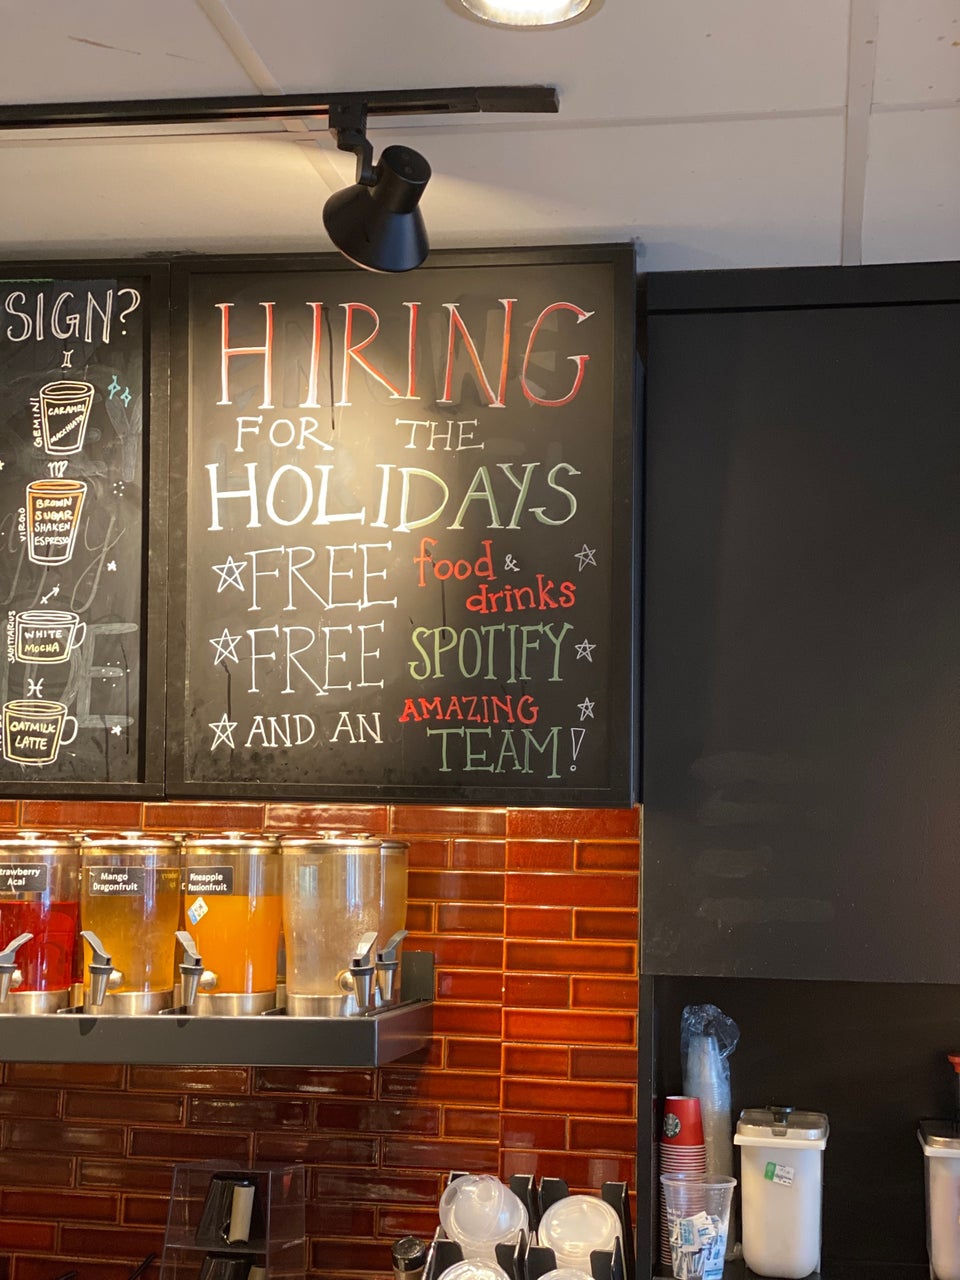 SIGN?
GEMINI
CARAMEL
MACCHIATO
VIRGO
BROWN
SUGAR
SHAKEN
ESPRESSO
SAGITTARIUS
WHITE
MOCHA
OATMILK
LATTE
HIRING
FOR THE
HOLIDAYS
FREE food &
drinks
FREE SPOTIFY
AND AN AMAZING
TEAM!
trawberry
Acai
Mango
Dragonfruit
Pineapple
Passionfruit